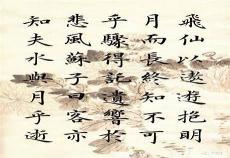 飛仙以遨遊抱明
月而長終知不可
乎驟得託遺響於
悲風蘇子曰客亦
知夫水與月乎逝